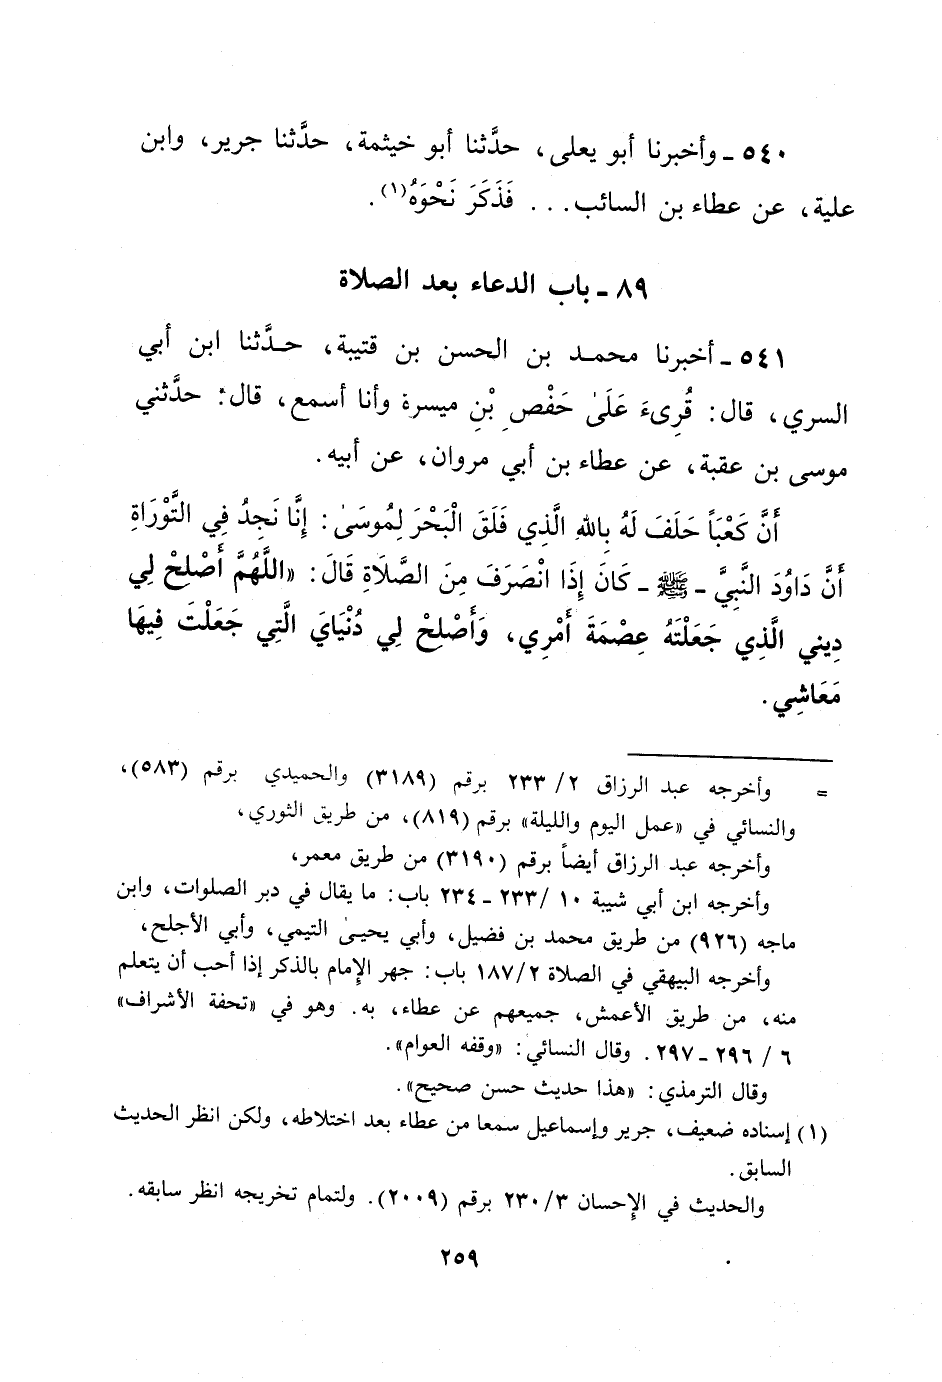 ٥٤٠ ـ وأخبرنا أبو يعلى، حدَّثنا أبو خيثمة، حدَّثنا جرير، وابن
علية، عن عطاء بن السائب... فَذَكَرَ نَحْوَهُ(١).
٨٩ ـ باب الدعاء بعد الصلاة
٥٤١ ـ أخبرنا محمد بن الحسن بن قتيبة، حدَّثنا ابن أبي
السري، قال: قُرِىءَ عَلَىٰ حَفْصِ بْنِ ميسرة وأنا أسمع، قال: حدَّثني
موسى بن عقبة، عن عطاء بن أبي مروان، عن أبيه.
أَنَّ كَعْبَاً حَلَفَ لَهُ بِاللهِ الَّذِي فَلَقَ الْبَحْرَ لِمُوسَىٰ: إِنَّا نَجِدُ فِي التَّوْرَاةِ
أَنَّ دَاوُدَ النَّبِيَّ ـ ﷺ ـ كَانَ إِذَا انْصَرَفَ مِنَ الصَّلَاةِ قَالَ: «اللَّهُمَّ أَصْلِحْ لِي
دِيني الَّذِي جَعَلْتَهُ عِصْمَةَ أَمْرِي، وَأَصْلِحْ لِي دُنْيَايَ الَّتِي جَعَلْتَ فِيهَا
مَعَاشِي.
= وأخرجه عبد الرزاق ٢/ ٢٣٣ برقم (٣١٨٩) والحميدي برقم (٥٨٣)،
والنسائي في «عمل اليوم والليلة» برقم (٨١٩)، من طريق الثوري،
وأخرجه عبد الرزاق أيضاً برقم (٣١٩٠) من طريق معمر،
وأخرجه ابن أبي شيبة ١٠ /٢٣٣ ـ ٢٣٤ باب: ما يقال في دبر الصلوات، وابن
ماجه (٩٢٦) من طريق محمد بن فضيل، وأبي يحيىٰ التيمي، وأبي الأجلح،
وأخرجه البيهقي في الصلاة ١٨٧/٢ باب: جهر الإِمام بالذكر إذا أحب أن يتعلم
منه، من طريق الأعمش، جميعهم عن عطاء، به. وهو في «تحفة الأشراف»
٦ / ٢٩٦ ـ ٢٩٧. وقال النسائي: «وقفه العوام».
وقال الترمذي: «هذا حديث حسن صحيح».
(١) إسناده ضعيف، جرير وإسماعيل سمعا من عطاء بعد اختلاطه، ولكن انظر الحديث
السابق.
والحديث في الإِحسان ٢٣٠/٣ برقم (٢٠٠٩). ولتمام تخريجه انظر سابقه.
٢٥٩